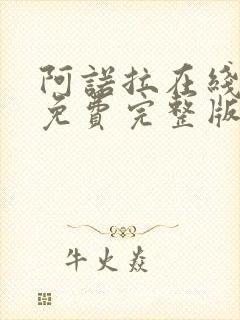 阿諾拉在綫
免費完整版
牛火焱